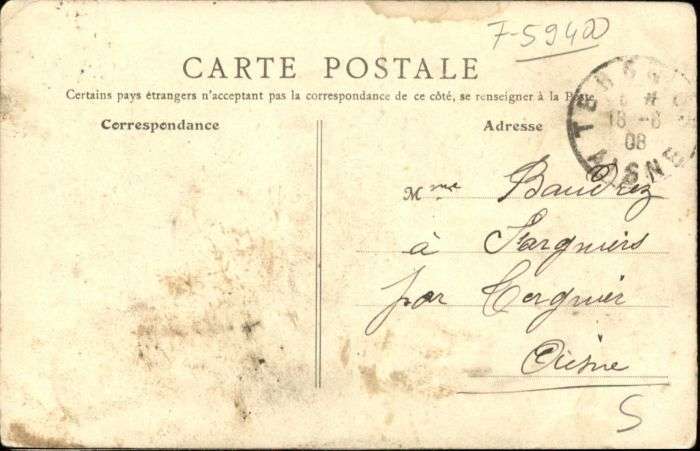 F-59400
CARTE POSTALE
Certains pays étrangers n'acceptant pas la correspondance de ce côté, se renseigner à la Poste
Correspondance
Adresse
18 -6
08
AISNE
Mme Baudrez
à Fargniers
par Tergnier
Aisne
S